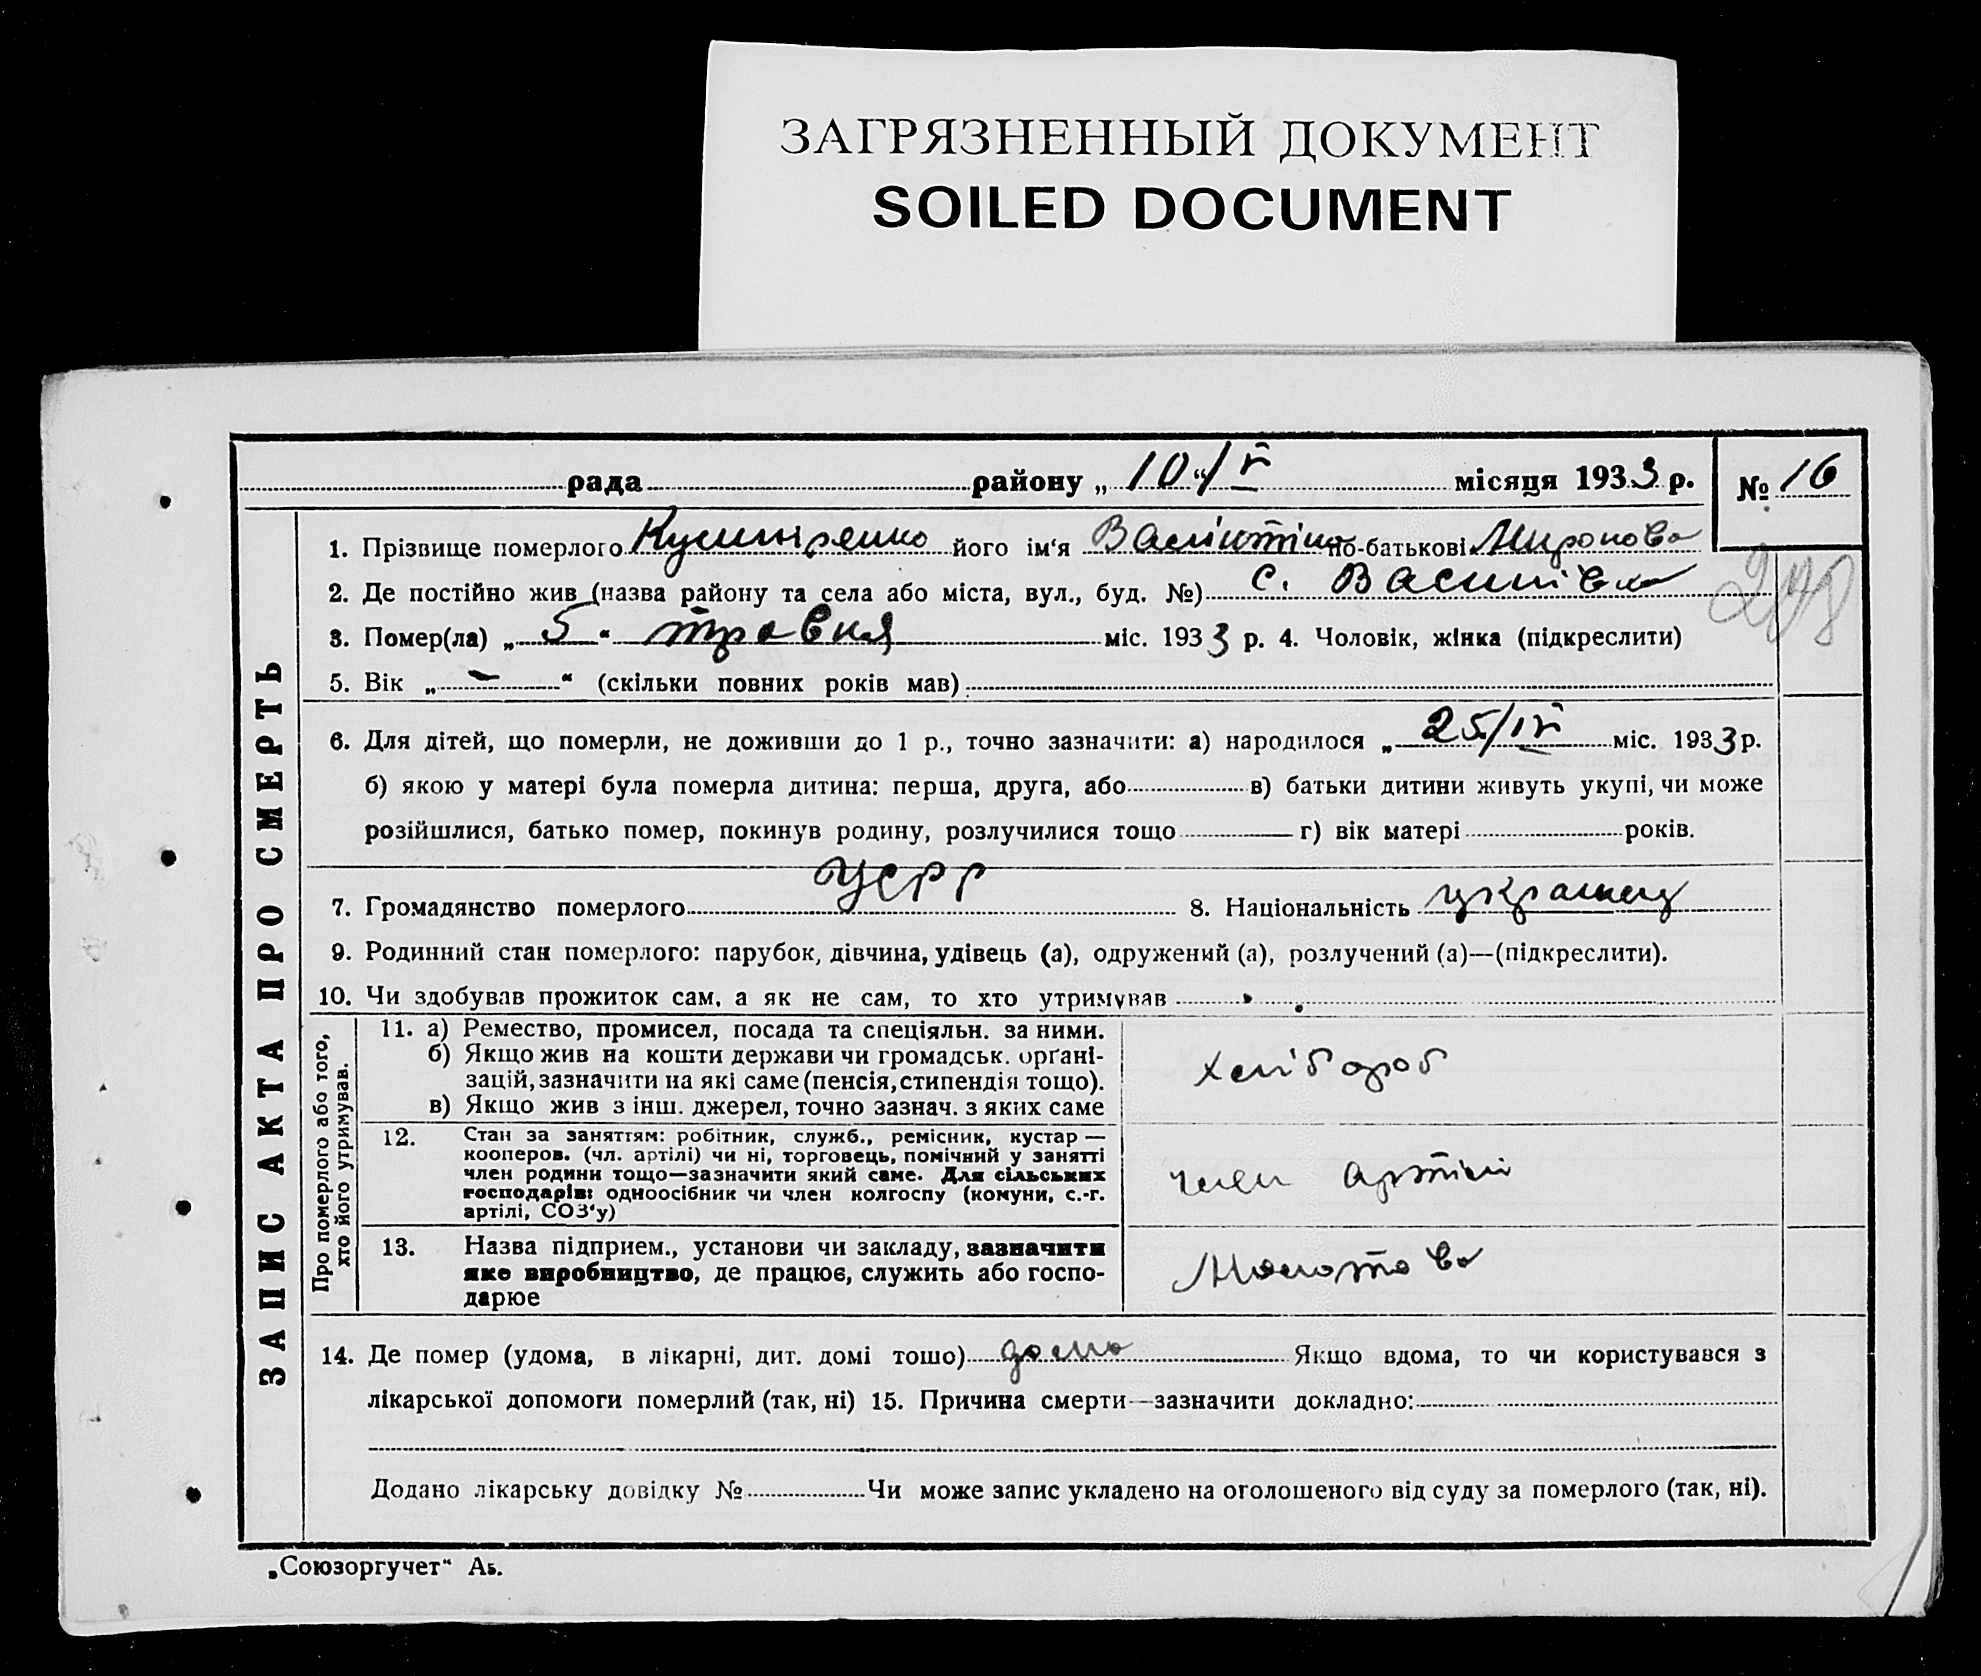 ЗАГРЯЗНЕННЫЙ ДОКУМЕНТ
SOILED DOCUMENT
рада района „ 10 “ / V місяця 1933 р. № 16
ЗАПИС АКТА ПРО СМЕРТЬ
1. Прізвище померлого Кушніренко його ім‘я Валінтіна по-батькові Миронова
2. Де постійно жив (назва району та села або міста, вул., буд. №) с. Василівка
208
3. Помер(ла) „ 5 “ травня міс. 1933 р. 4. Чоловік, жінка (підкреслити)
5. Вік „ – “ (скільки повних років мав)
6. Для дітей, що померли, не доживши до 1 р., точно зазначити: а) народилося „ 25/IV міс. 1933 р.
б) якою у матері була померла дитина: перша, друга, або в) батьки дитини живуть укупі, чи може
розійшлися, батько помер, покинув родину, розлучилися тощо г) вік матері років.
7. Громадянство померлого УСРР 8. Національність украінец
9. Родинний стан померлого: парубок, дівчина, удівець (а), одружений (а), розлучений (а)—(підкреслити).
10. Чи здобував прожиток сам, а як не сам, то хто утримував
Про померлого або того,
хто його утримував.
11. а) Ремество, промисел, посада та спеціяльн. за ними.
б) Якщо жив на кошти держави чи громадськ. орґані-
зацій, зазначити на які саме (пенсія, стипендія тощо).
в) Якщо жив з інш. джерел, точно зазнач. з яких саме
хлібороб
12. Стан за заняттям: робітник, служб., ремісник, кустар —
кооперов. (чл. артілі) чи ні, торговець, помічний у занятті
член родини тощо—зазначити який саме. Для сільських
господарів: одноосібник чи член колгоспу (комуни, с.-г.
артілі, СОЗ‘у)
член артілі
13. Назва підприєм., установи чи закладу, зазначити
яке виробництво, де працює, служить або госпо-
дарює
Молотова
14. Де помер (удома, в лікарні, дит. домі тощо) дома Якщо вдома, то чи користувався з
лікарської допомоги померлий (так, ні) 15. Причина смерти—зазначити докладно:
Додано лікарську довідку № Чи може запис укладено на оголошеного від суду за померлого (так, ні).
„Союзоргучет“ Аз.